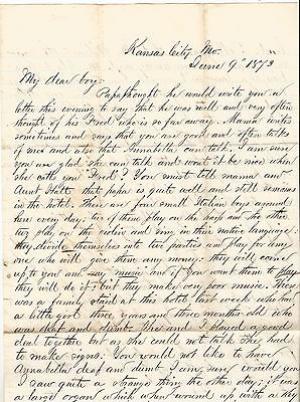 Kansas City, Mo.
June 9th 1873
My dear boy:
Papa thought he would write you a
letter this evening to say that he was well and very often
thought of his Fred who is so far away. Mama writes
sometimes and says that you are good and often talks
of me and also that Annabella can talk. I am sure
you are glad she can talk and wont it be nice when
she calls you "Fred"? You must tell mama and
Aunt that papa is quite well and still remains
in the hotel. There are four small Italian boys around
here every day: two of them play on the harp and the other
two play on the violin and sing in their native language:
they divide themselves into two parties and play for any
one who will give them any money: they will come
up to you and say music and if you want them to play
they will do it: but they make very poor music. There
was a family stoped at this hotel last week who had
a little girl three years and three months old who
was deaf and dumb. She and I played a good
deal together but as she could not talk she had
to make signs. You would not like to have
Annabella deaf and dumb I am sure would you
I saw quite a strange thing the other day: it was
a large organ which when wound up with a key